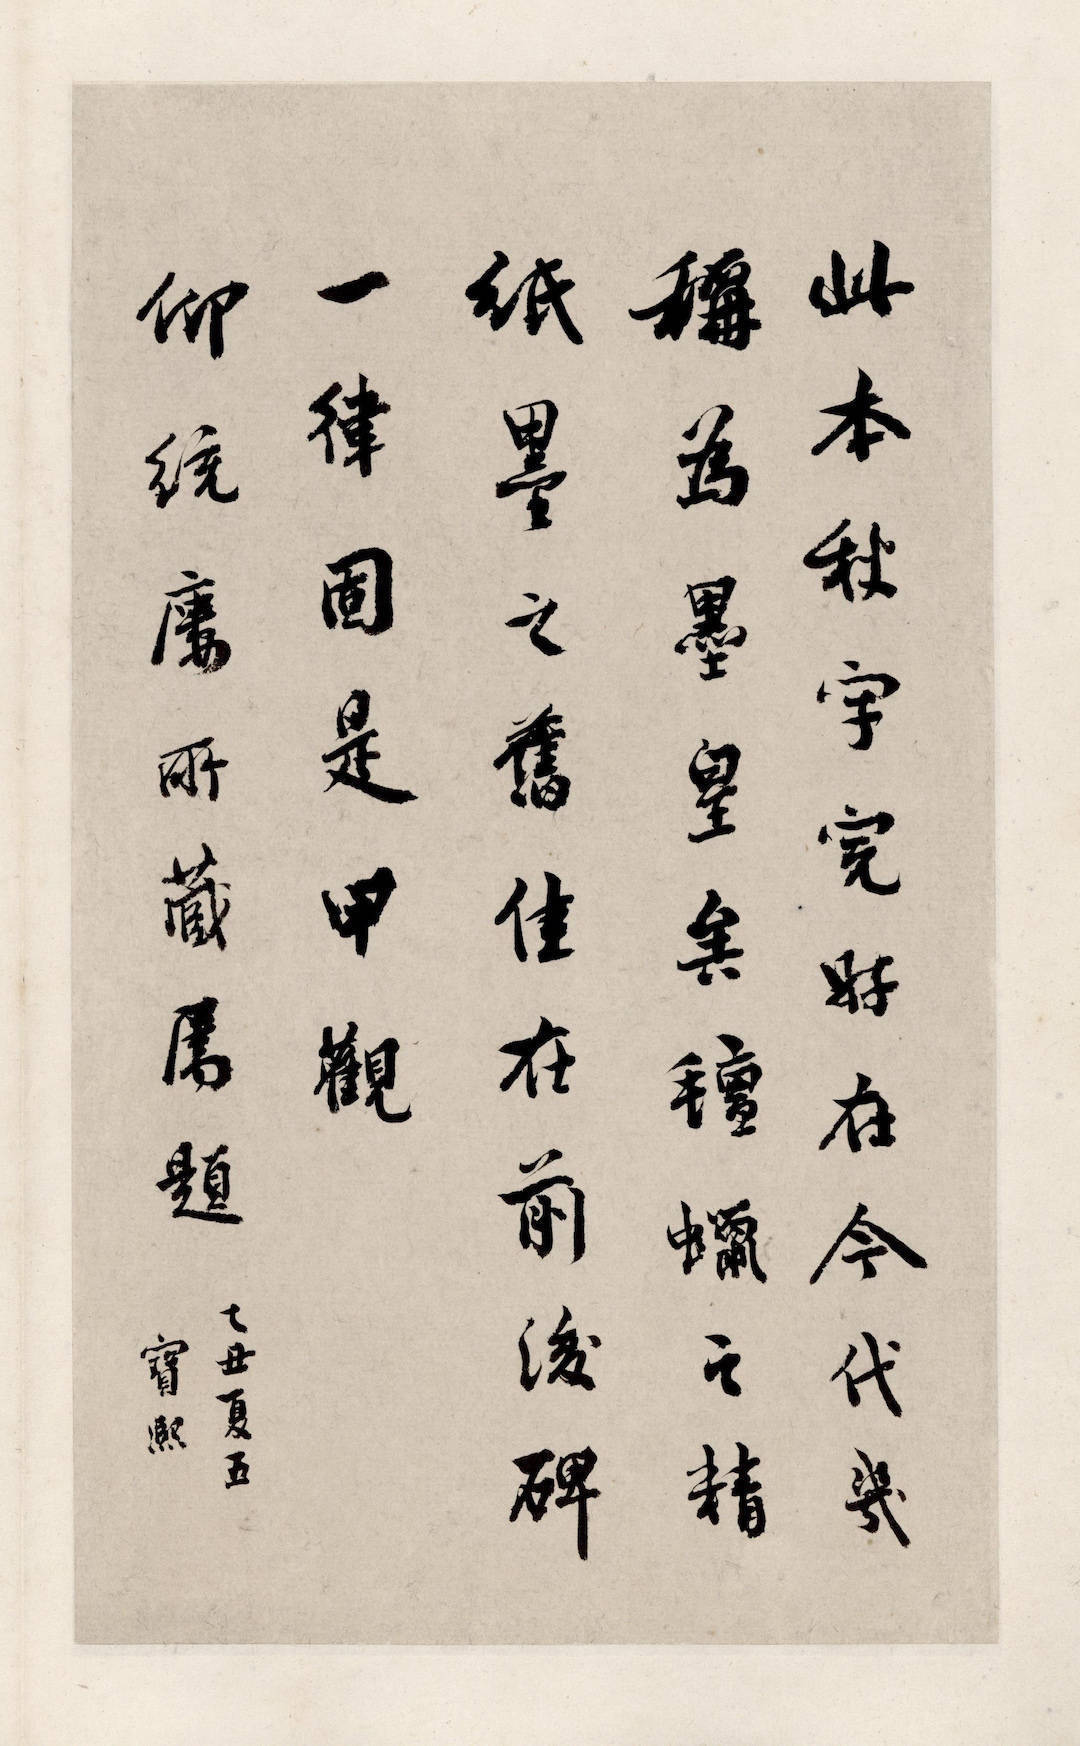 此本秋字完好在今代幾
稱為墨皇矣氊蠟之精
紙墨之舊佳在前後碑
一律固是甲觀
仰統屢所藏屬題
乙丑夏五
寶熙